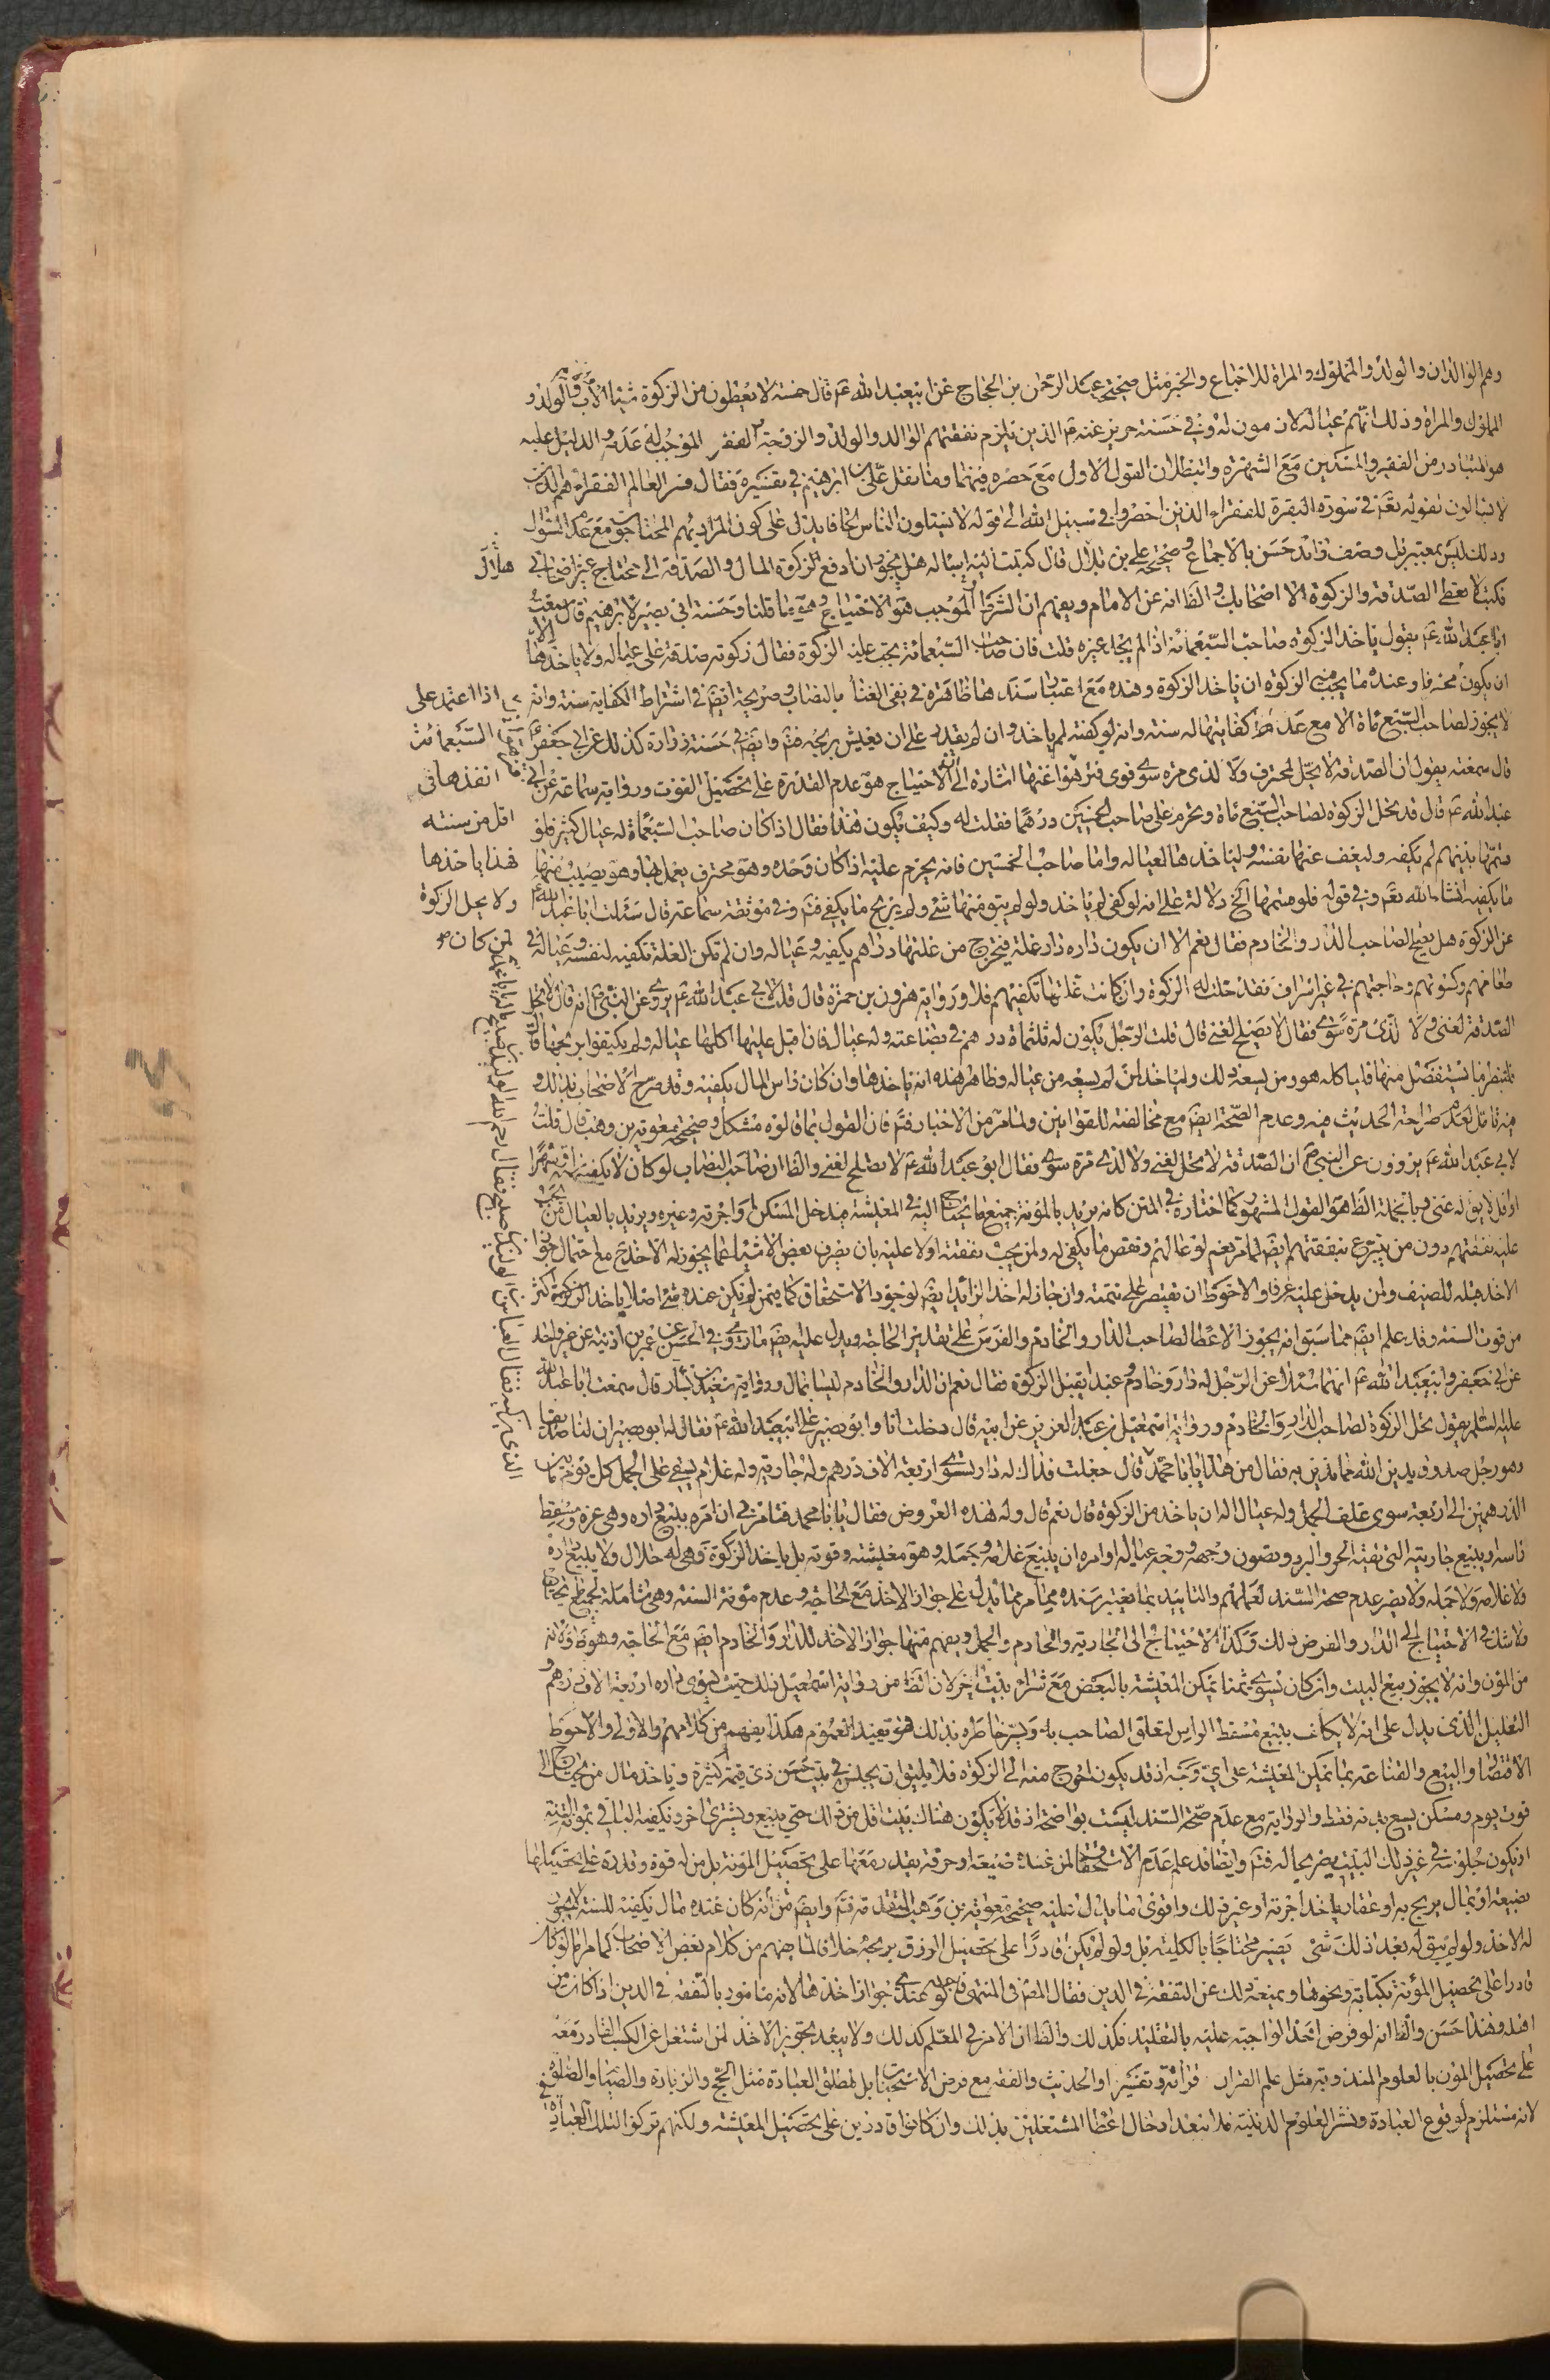 وهم الوالدان والولد والمملوك والمراة للاجماع والخبر مثل صحيحة عبد الرحمن بن الحجاج عن ابيعبد الله ع قال خمسة لا يعطون من الزكوة شيئا الاب والام والولد و
المملوك والمراة وذلك انهم عياله لازمون له وفي حسنة حريز عنه ع الذين يلزم نفقتهم الوالد والولد والزوجة الفقر الموجب له عدمه الدليل عليه
هو المتبادر من الفقير والمسكين مع الشهرة وابنظلان القول الاول مع حصره فيهما وما نقل علي بن ابرهيم في تفسيره فقال فسر العالم الفقراء هم الذين
لا يسالون لقوله تعالى في سورة البقرة للفقراء الذين احصروا في سبيل الله الى قوله لا يسئلون الناس الحافا يدل على كون المراد بهم المحتاجون مع عدم السؤال
وذلك ليس بمعتبر بل وصف زائد حسن بالاجماع وصحيحة علي بن بلال قال كتبت اليه اساله هل يجوز ان ادفع الزكوة المال والصدقة الى محتاج غير اصحابي
فكتب لا تعط الصدقة والزكوة الا اصحابك والظ انه عن الامام ويفهم ان الشرط الموجب هو الاحتياج وهو ما قلنا وحسنة ابي بصير لابرهيم قال سمعت
ابا عبد الله ع يقول ياخذ الزكوة صاحب السبعمائة اذا لم يجد غيره قلت فان صاحب السبعمائة يجب عليه الزكوة فقال زكوته صدقة على عياله ولا ياخذها الا
ان يكون محترفا وعنده ما يجب فيه الزكوة ان ياخذ الزكوة وهذه مع اعتبار سندها ظاهرة في نفي الغنا بالنصاب وصريحة ايض في اشتراط الكفاية سنة وانه
لا يجوز لصاحب السبع مائة الا مع عدم كفايتها له سنة وانه لو كفته لم ياخذ وان لم يقدر على ان يعيش بربحه فتم وايض في حسنة زرارة كذلك عن ابي جعفر ع
قال سمعته يقول ان الصدقة لا تحل لمحترف ولا لذي مرة سوى قوى فتنزهوا عنها اشارة الى ان الاحتياج هو عدم القدرة على تحصيل القوت ورواية سماعة عن ابي
عبد الله ع قال قد تحل الزكوة لصاحب السبع مائة وتحرم على صاحب الخمسين درهما فقلت له وكيف يكون هذا فقال اذا كان صاحب السبعمائة له عيال كثير فلو
قسمها بينهم لم يكفه وليعفف عنها نفسه ولياخذها لعياله واما صاحب الخمسين فانه يحرم عليه اذا كان وحده وهو محترف يعمل بها وهو يصيب منها
ما يكفيه انشاء الله تعالى وفي قوله فلو قسمها الخ دلالة على انه لو كفى لم ياخذ ولو لم يبق منها شئ ولم يربح ما يكفي فتم وفي موثقة سماعة قال سئلت ابا عبد الله ع
عن الزكوة هل يصلح لصاحب الدار والخادم فقال نعم الا ان يكون داره دار غلة فيخرج من غلتها دراهم يكفيه وعياله وان لم تكن الغلة تكفيه لنفسه وعياله في
طعامهم وكسوتهم وحاجتهم في غير اسراف فقد حلت له الزكوة وان كانت غلتها تكفيهم فلا ورواية هرون بن حمزة قال قلت لابي عبد الله ع يروى عن النبي ص انه قال لا تحل
الصدقة لغني ولا لذي مرة سوى فقال لا يصلح لغني قال قلت الرجل يكون له ثلثمائة درهم في بضاعته وله عيال فان اقبل عليها اكلها عياله ولم يكتفوا بربحها قال
فلينظر ما يستفضل منها فلياكله هو ومن يسعه ذلك ولياخذ لمن لم يسعه من عياله وظاهر هذه انه ياخذها وان كان راس المال يكفيه وقد صرح الاصحاب بذلك و
فيه تامل لعدم صراحة الحديث فيه وعدم الصحة ايض مع مخالفته للقوانين ولما مر من الاخبار فتم فان القول بما قالوه مشكل وصحيحة معوية بن وهب قال قلت
لابي عبد الله ع يروون عن النبي ص ان الصدقة لا تحل لغني ولا لذي مرة سوى فقال ابو عبد الله ع لا تصلح لغني والظ ان صاحب النصاب لو كان لا يكفيه شهرا
او اقل لا يق له غني وبالجملة الظاهر هو القول المشهور كما اختاره في المتن كانه يريد بالمؤنة جميع ما يحتاج اليه في المعيشة فيدخل المسكن واجرته وغيره ويريد بالعيال من يجب
عليه نفقتهم دون من يتبرع بنفقتهم ايض لما مر نعم لو عالهم ونقص ما يكفي له ولمن يجب نفقته اولا عليه بان يصرف بعض الاشياء انما يجوز له الاخذ ح مع احتمال جواز
الاخذ قبله للضيف ولمن يدخل عليه عرفا والاحوط ان يقتصر على تتمته وان جاز له اخذ الزائد ايض لوجود الاستحقاق كما فيمن لم يكن عنده شئ اصلا ياخذ الزكوة اكثر
من قوت السنة وقد علم ايض مما سبق انه يجوز الاعطا لصاحب الدار والخادم والفرس على تقدير الحاجة ويدل عليه ايض ما روى في الحسن عن عمر بن اذينة عن غير واحد
عن ابي جعفر وابيعبد الله ع انهما سئلا عن الرجل له دار وخادم وعبد ايقبل الزكوة فقال نعم ان الدار والخادم ليسا بمال ورواية سعيد بن يسار قال سمعت ابا عبد الله
عليه السلم يقول تحل الزكوة لصاحب الدار والخادم ورواية اسمعيل بن عبد العزيز عن ابيه قال دخلت انا وابو بصير على ابيعبد الله ع فقال له ابو بصير ان لنا صديقا
وهو رجل صدوق يدين الله بما ندين به فقال من هذا يا ابا محمد قال جعلت فداك له دار تسوى اربعة الاف درهم وله جارية وله غلام يسقي على الجمل كل يوم ما بين
الدرهمين الى اربعة سوى علف الجمل وله عيال اله ان ياخذ من الزكوة قال نعم قال وله هذه العروض فقال يا ابا محمد فتامرني ان امره ببيع داره وهي عزه ومسقط
راسه او ببيع جاريته التي تقيه الحر والبرد وتصون وجهه ووجه عياله او امره ان يبيع غلامه وجمله وهو معيشته وقوته بل ياخذ الزكوة وهي له حلال ولا يبيع داره
ولا غلامه ولا جمله ولا يضر عدم صحة السند لعملهم والتاييد بما يعتبر سنده مما مر مما يدل على جواز الاخذ مع الحاجة وعدم مؤنة السنة وهي شاملة لجميع ما يحتاج
ولا شك في الاحتياج الى الدار والفرض ذلك وكذا الاحتياج الى الجارية والخادم والجمل ويفهم منها جواز الاخذ للدار والخادم ايض مع الحاجة وهو ظ ولانه
من المؤن وانه لا يجوز بيع البيت وان كان يسوى ثمنا يمكن المعيشة بالبعض مع شراء بيت اخر لان الظ من رواية اسمعيل ذلك حيث يسوى داره اربعة الاف درهم و
التعليل الذي يدل على انه لا يكلف ببيع مسقط الراس لتعلق الصاحب به وتسير خاطره بذلك فهو يفيد العموم هكذا يفهم من كلامهم والاولى والاحوط
الاقتضا والبيع والقناعة بما يمكن المعيشة على اي وجه اذ قد يكون احوج منه الى الزكوة فلا يليق ان يجلس في بيت حسن ذي قيمة كثيرة وياخذ مال من يحتاج الى
قوت يوم ومسكن يسع بدنه فقط والرواية مع عدم صحة السند ليست بواضحة اذ قد لا يكون هناك بيت اقل من ذلك حتى يبيع ويشترى اخر ويكفيه الباقي بمؤنة السنة
او يكون جلوسه في غير ذلك البيت يضر بحاله فتم وايضا قد علم عدم الاستحقاق لمن عنده ضيعة او حرفة يقدر معها على تحصيل المؤنة بل من له قوة وقدرة على تحصيلها
بضيعة او بمال يربح به او عقار ياخذ اجرته او غير ذلك واقوى ما يدل عليه صحيحة معوية بن وهب المتقدمة فتم وايض من انه كان عنده مال يكفيه للسنة لا يجوز
له الاخذ ولو لم يبق له بعد ذلك شئ يصير محتاجا بالكلية بل ولو لم يكن قادرا على تحصيل الرزق بربحه خلافا لما يفهم من كلام بعض الاصحاب كما مر اما لو كان
قادرا على تحصيل المؤنة بكتابة ونحوها ويمنعه ذلك عن التفقه في الدين فقال المص في المنتهى فالوجه عندي جواز اخذها لانه مامور بالتفقه في الدين اذا كان من
اهله وهذا حسن والظ انه لو فرض اخذ الواجبة عليه بالتقليد فكذلك والظ ان الامر في المعلم كذلك ولا يبعد تجويز الاخذ لمن اشتغل عن الكسب القادر معه
على تحصيل المؤن بالعلوم المندوبة مثل علم القران قرائة وتفسير او الحديث والفقه مع فرض الاستحباب بل لمطلق العبادة مثل الحج والزيارة والصيام والصلوة في
لانه مستلزم لوقوع العبادة ونشر العلوم الدينية فلا يبعد ادخال اعطا المشتغلين بذلك وان كانوا قادرين على تحصيل المعيشة ولكنهم تركوا لتلك العبادة
هلال
اذا اعتمد على
السبعمائة
انفذها في
اقل من سنته
فهذا ياخذها
ولا يحل الزكوة
لمن كان